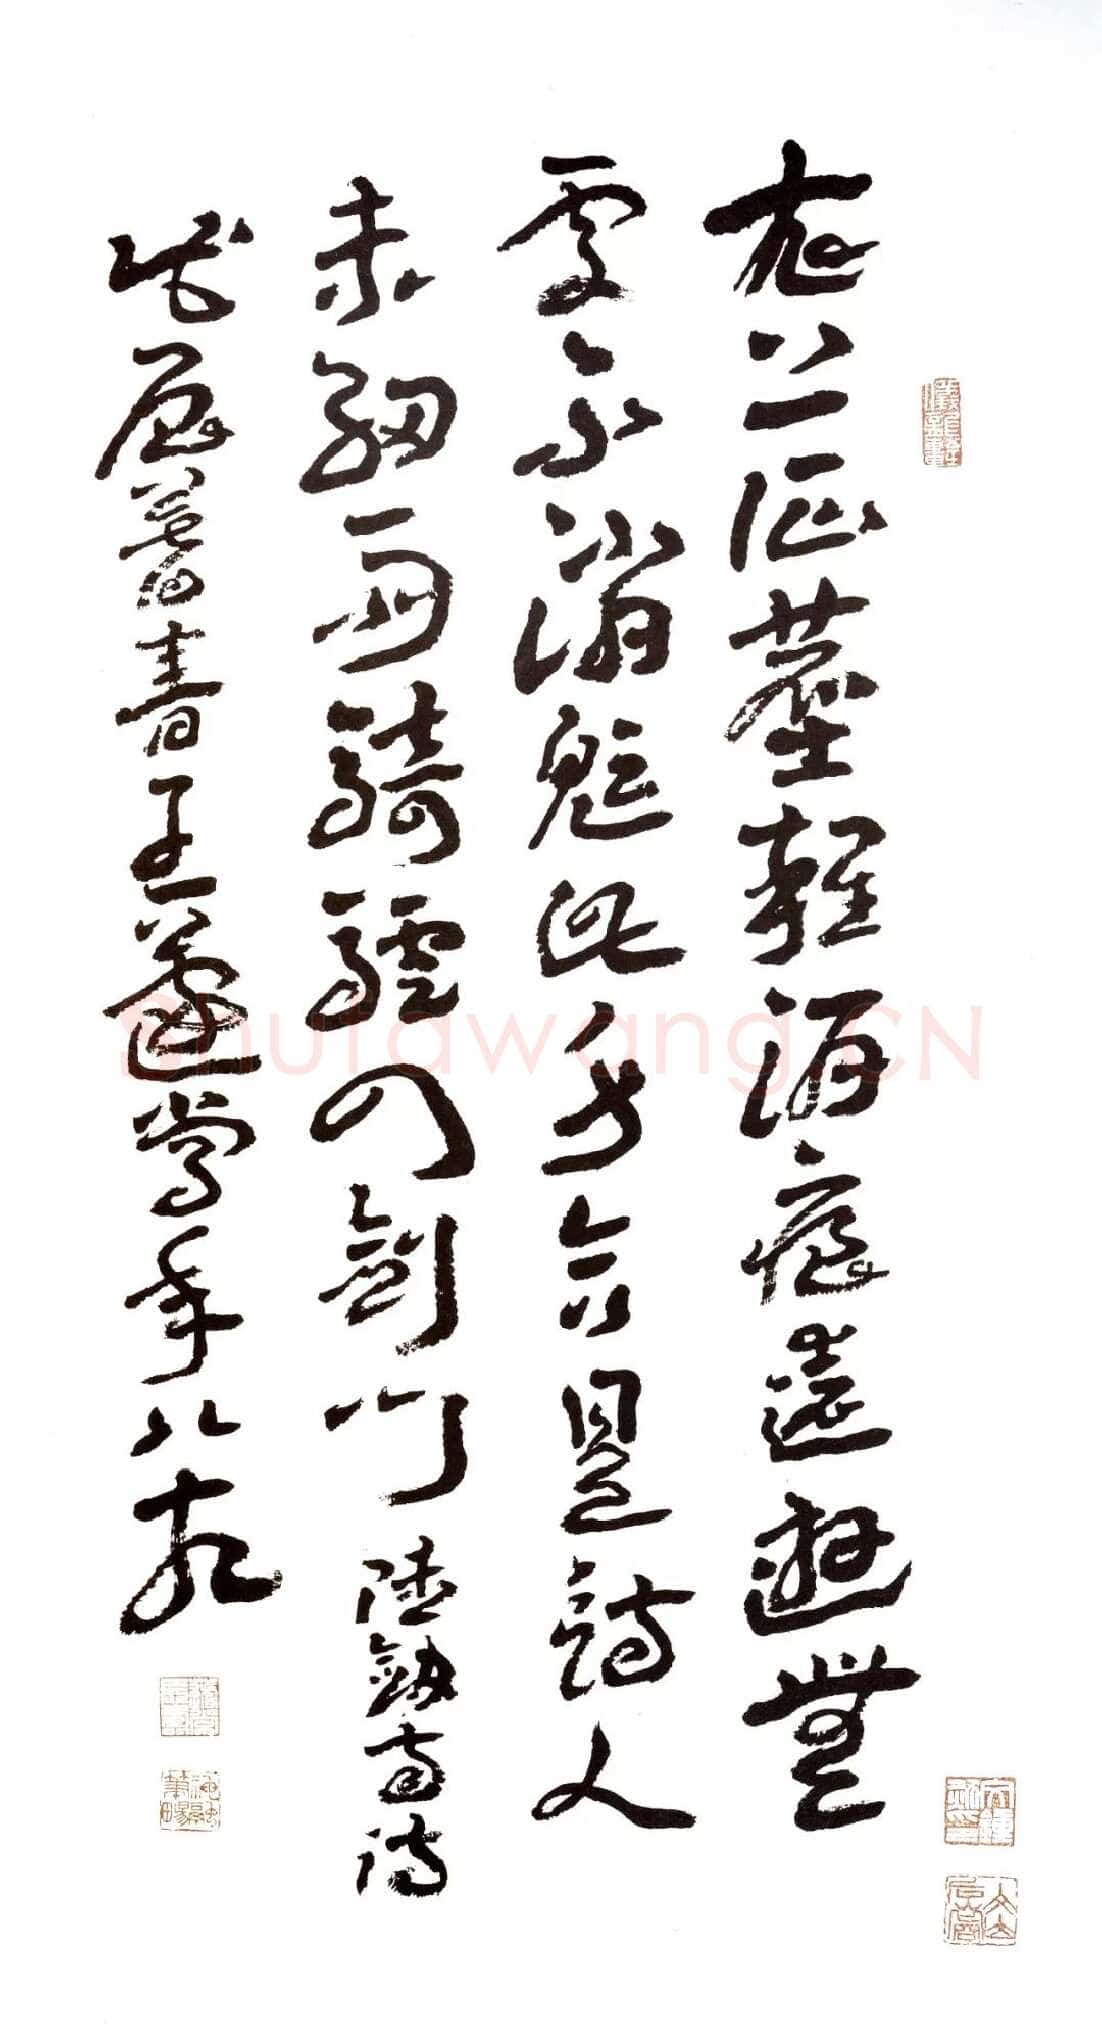 衣上征塵雜酒痕遠遊無
處不消魂此身合是詩人
未細雨騎驢入劍門陸劍南詩
王蘧常年八九
Shufawang.CN